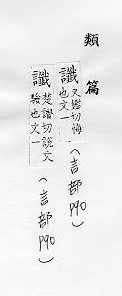 類篇
讖叉鑑切悔
也文一
(言部P90)
讖楚譖切說文
驗也文一
(言部P90)